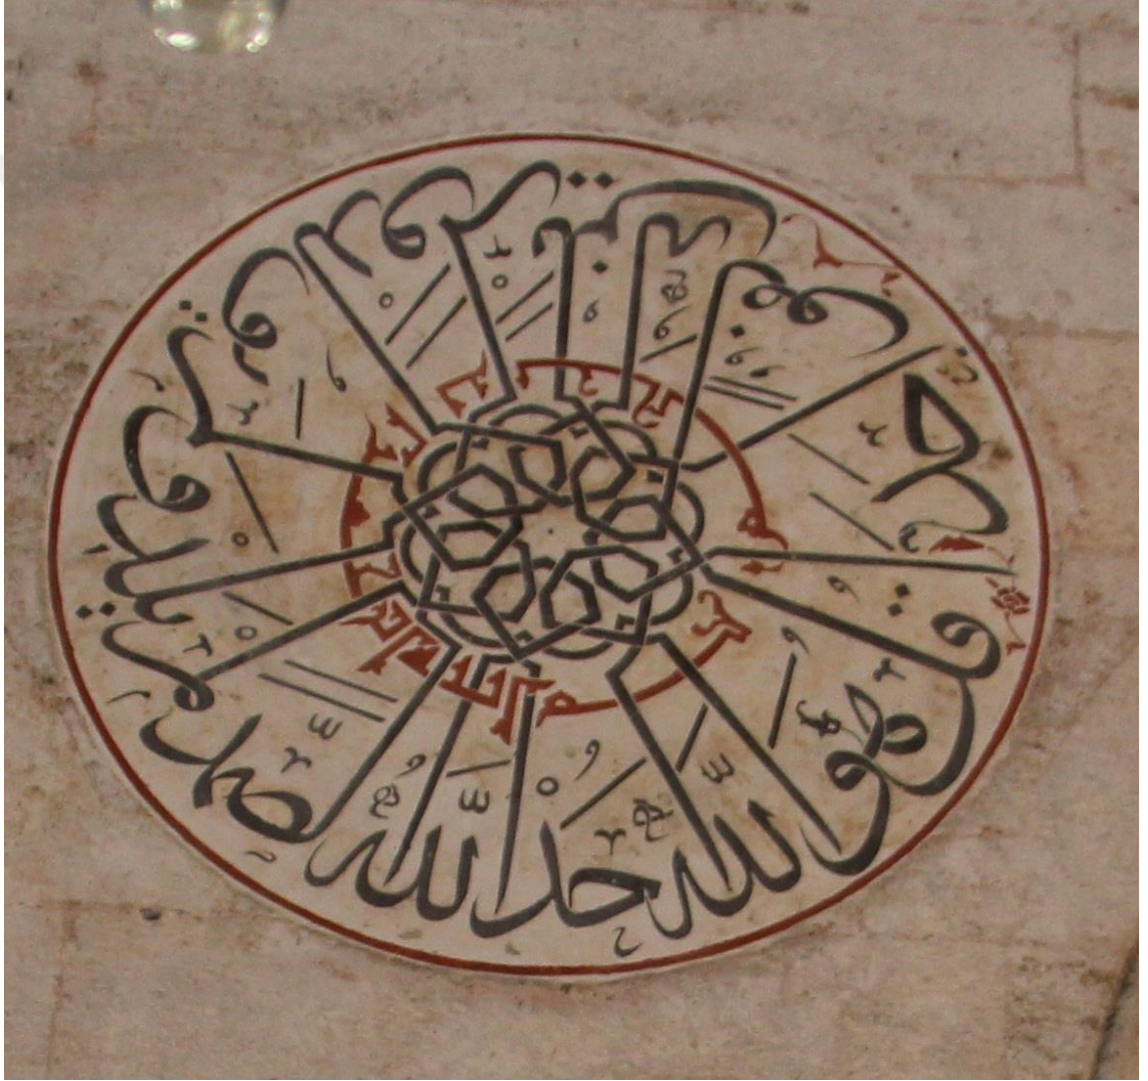 قل هو الله احد الله الصمد لم يلد ولم يولد ولم يكن له كفوا احد